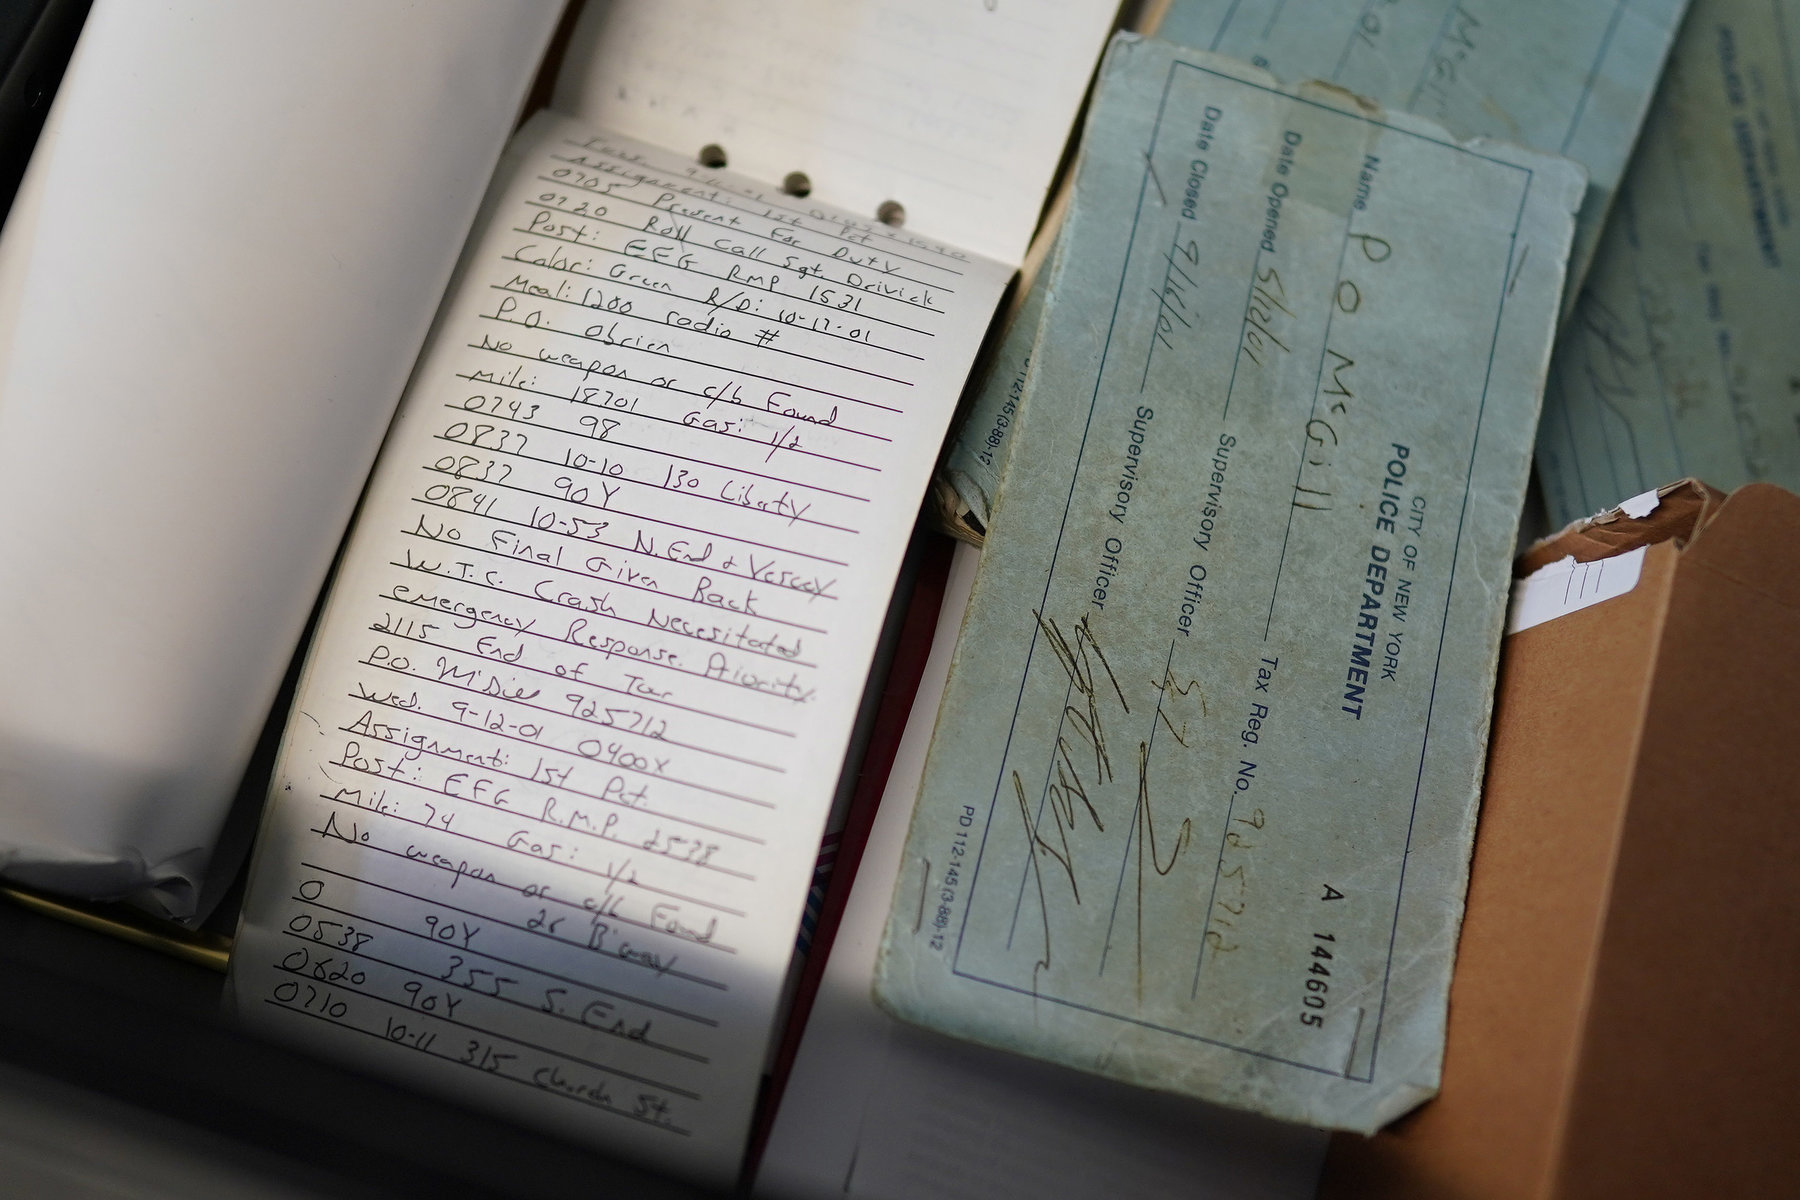 Assignment: 1st Pct
0705 Present For Duty
0720 Roll Call Sgt Drivick
Post: EFG RMP 1531
Color: Green R/D: 10-17-01
Meal: 1200 radio #
P.O. Obrien
No weapon or c/b Found
Mile: 18701 Gas: 1/2
0743 98
0837 10-10 130 Liberty
0837 90Y
0841 10-53 N. End & Vesey
No Final Given Back
W.T.C. Crash Necesitated
emergency Response. Priority.
2115 End of Tour
P.O. 925712
Wed. 9-12-01 0400x
Assignment: 1st Pct.
Post: EFG R.M.P. 2538
Mile: 74 Gas: 1/2
No weapon or c/b Found
0 26 B'way
0538 90Y
0620 355 S. End
0710 90Y
10-11 315 Church St.
CITY OF NEW YORK
POLICE DEPARTMENT
A 144605
Name PO McGill
Date Opened 5/2/01 Supervisory Officer Tax Reg. No. 925712
Date Closed 9/6/01 Supervisory Officer
PD 112-145 (3-88)-12
112-145 (3-88)-12